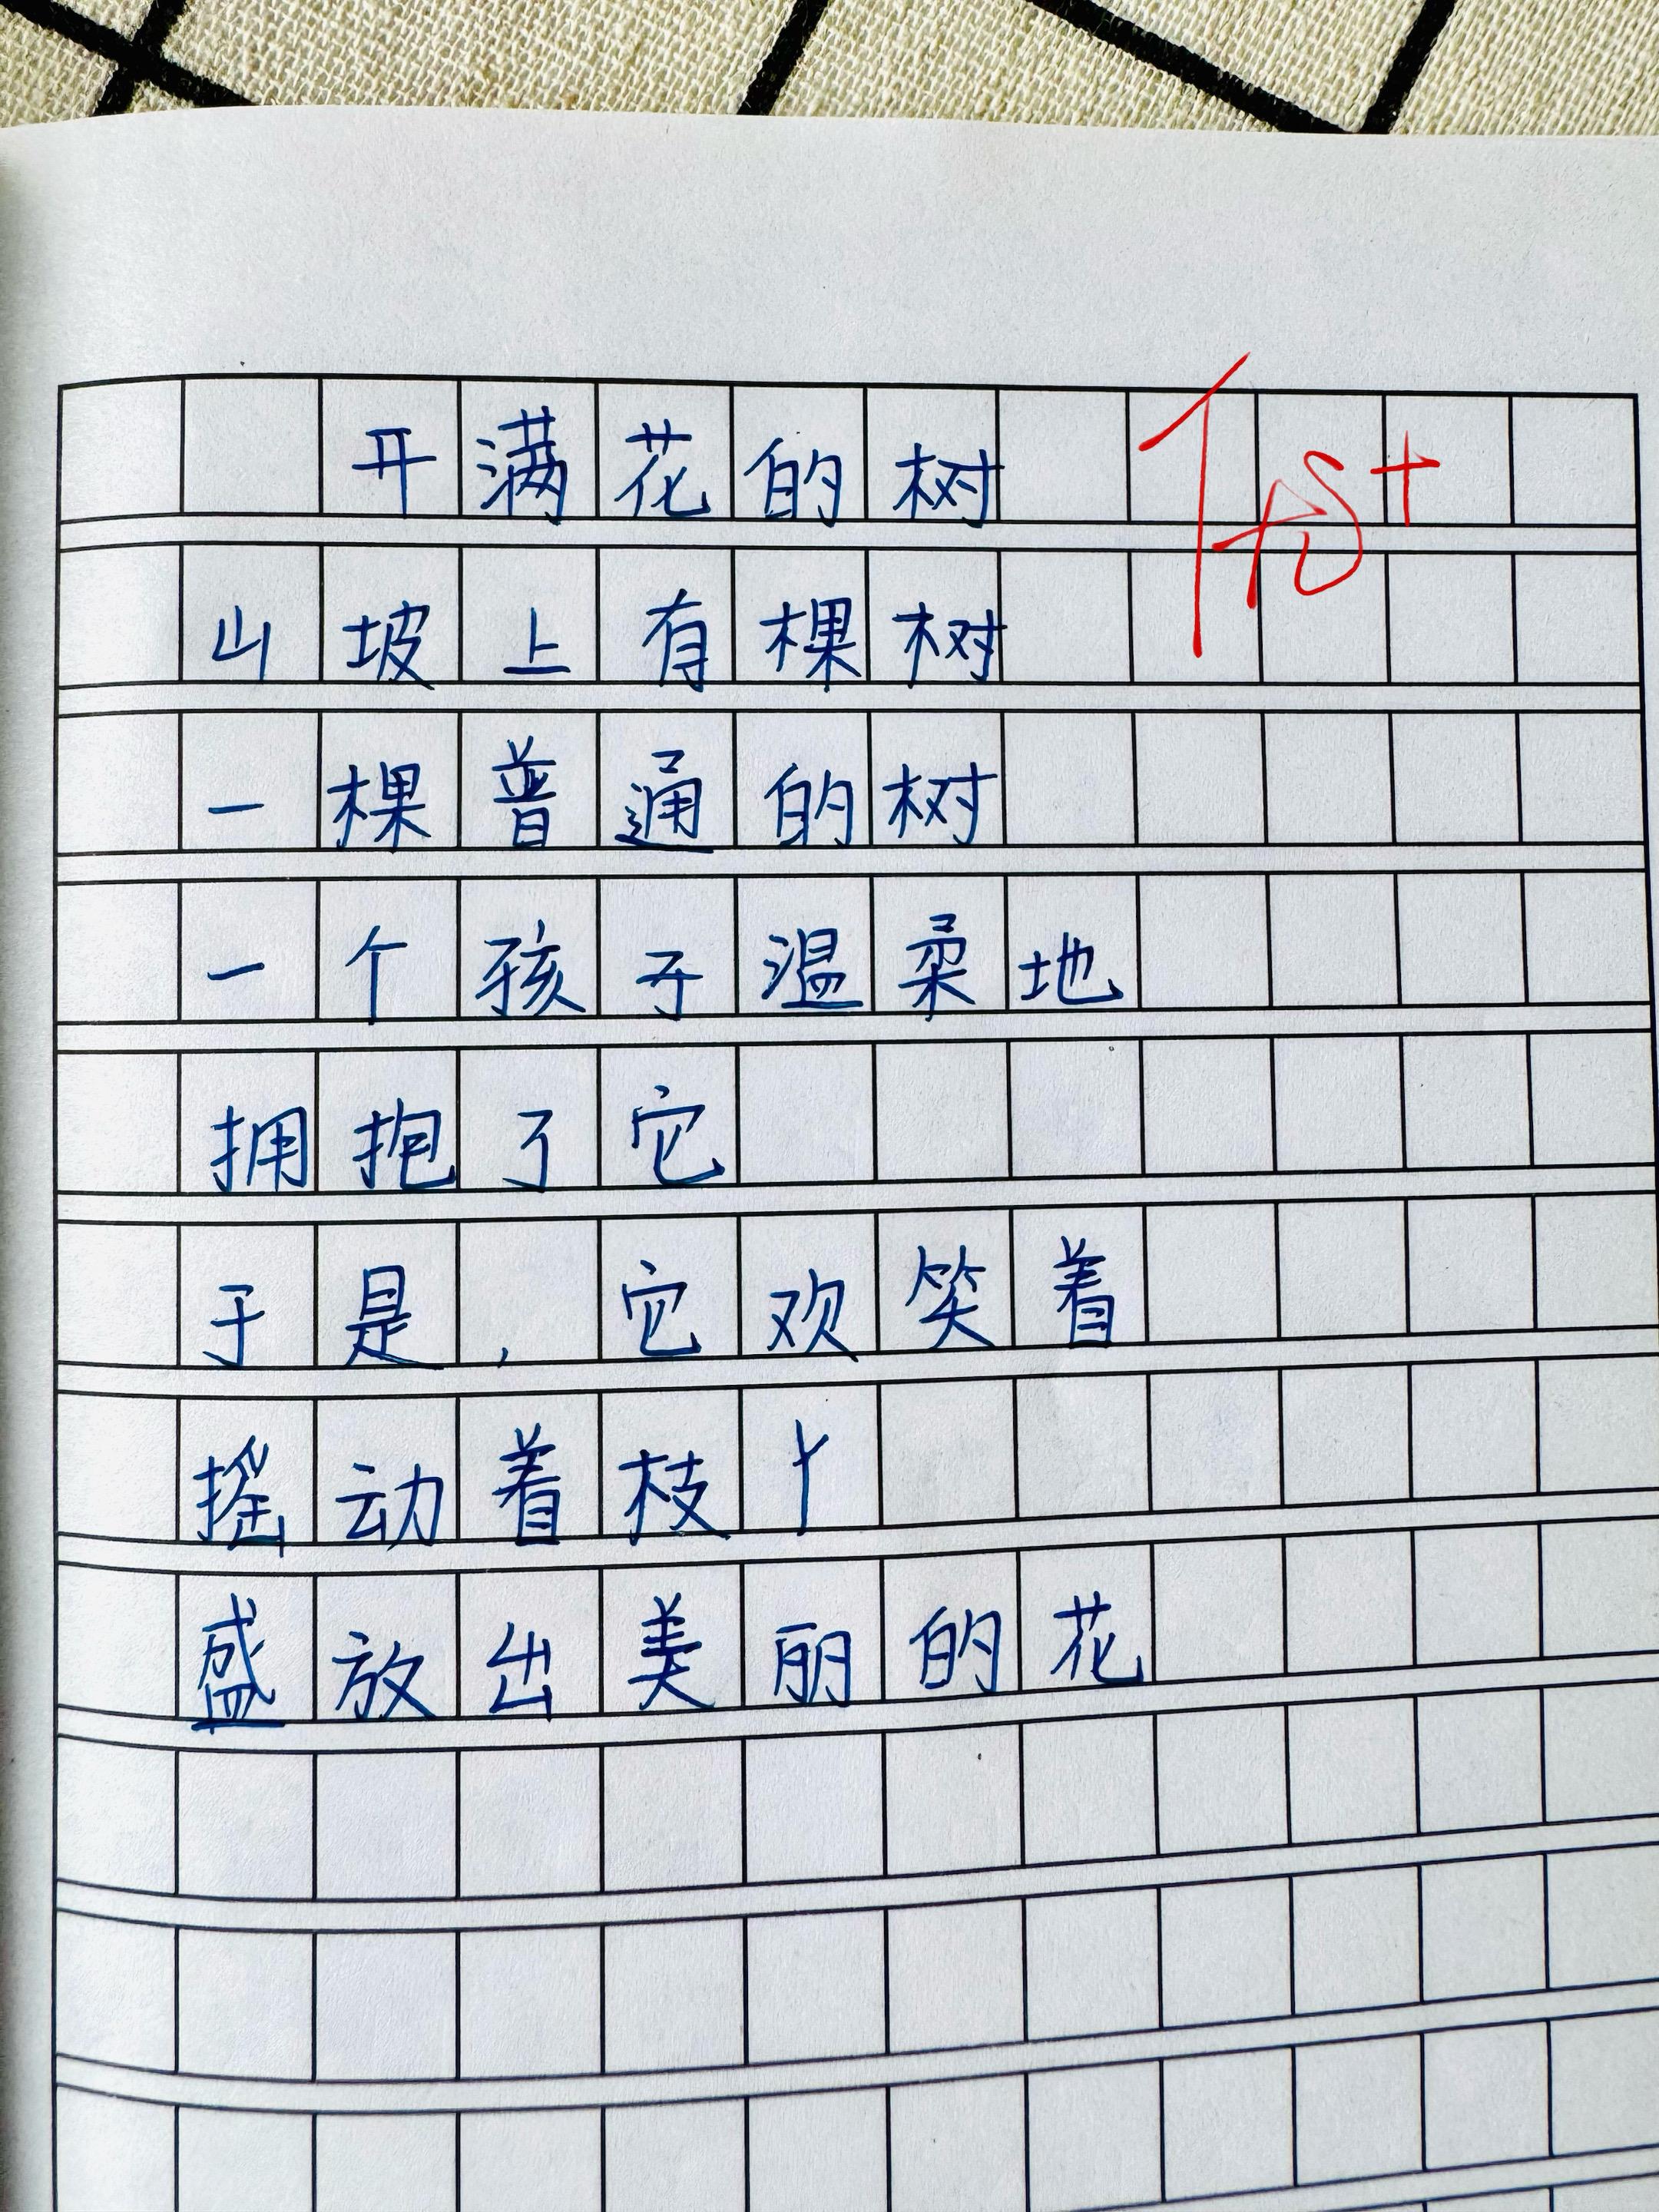 开满花的树
山坡上有棵树
一棵普通的树
一个孩子温柔地
拥抱了它
于是，它欢笑着
摇动着枝丫
盛放出美丽的花